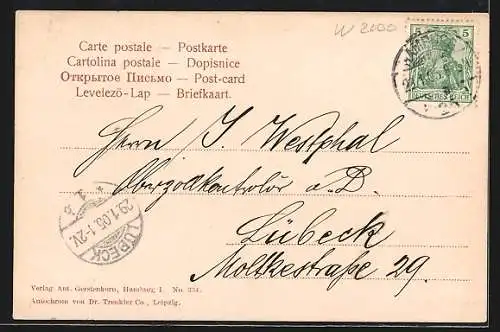 W 2000
Carte postale — Postkarte
Cartolina postale — Dopisnice
Открытое Письмо — Post-card
Levelezö-Lap — Briefkaart.
5 5
DEUTSCHES REICH
Herrn J. Westphal
Oberzollkontrolör a. D.
Lübeck
Moltkestraße 29.
LÜBECK
29.1.05.1-2V.
1 b
Verlag Ant. Gerstenkorn, Hamburg I. No. 234.
Autochrom von Dr. Trenkler Co., Leipzig.